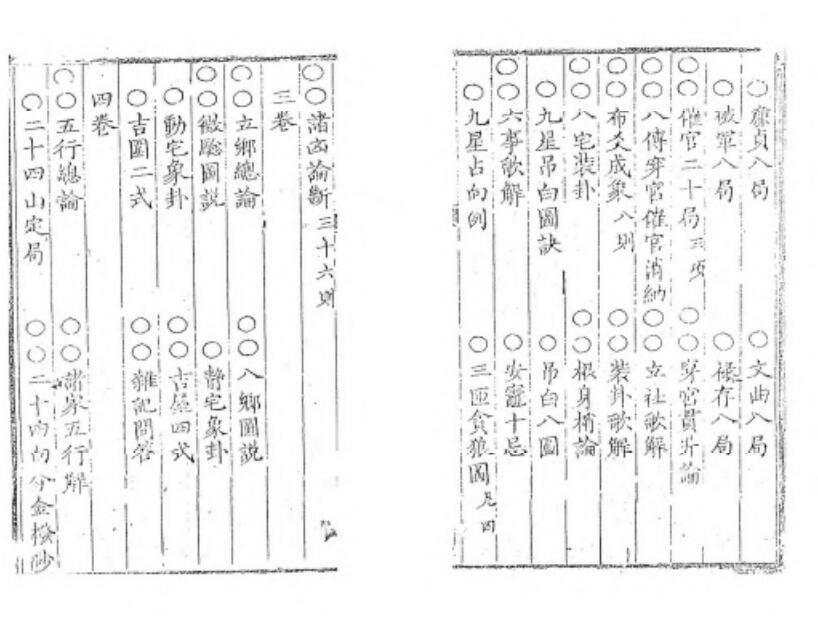 ○廉貞八局 ○文曲八局
○破軍八局 ○祿存八局
○○催官二十局 三項 ○○穿官貫井論
○○八傳穿官催官消納 ○○立社歌解
○○布爻成象 八則 ○○裝卦歌解
○○八宅裝卦 ○○根身梢論
○九星吊白圖訣 ○吊白八圖
○○六事歌解 ○安竈十忌
○九星占向例 ○三匝貪狼圖
○○諸凶論斷 三十六則
三卷
○○立鄉總論 ○○八鄉圖說
○○微騐圖說 ○靜宅象卦
○動宅象卦 ○○古屋四式
○吉圖二式 ○○雜記問答
四卷
○○五行總論 ○○諸家五行解
○二十四山定局 ○○二十四向分金撥砂